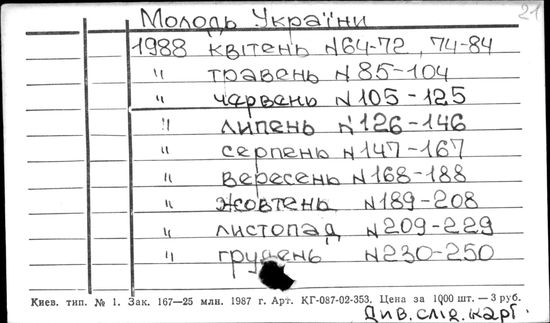 21
Молодь України
1988 квітень N64-72, 74-84
" травень N85-104
" червень N105-125
" липень N126-146
" серпень N147-167
" вересень N168-188
" жовтень N189-208
" листопад N209-229
" грудень N230-250
Киев. тип. № 1. Зак. 167—25 млн. 1987 г. Арт. КГ-087-02-353. Цена за 1000 шт. — 3 руб.
Див. слід. карт.